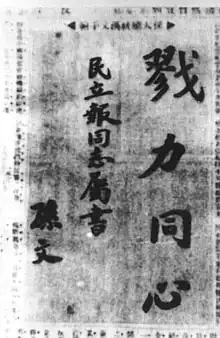 戮力同心
民立報同志属書
孫文